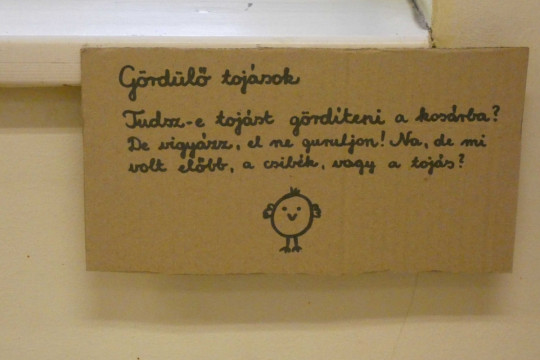 Gördülő tojások
Tudsz-e tojást gördíteni a kosárba?
De vigyázz, el ne guruljon! Na, de mi
volt előbb, a csibék, vagy a tojás?